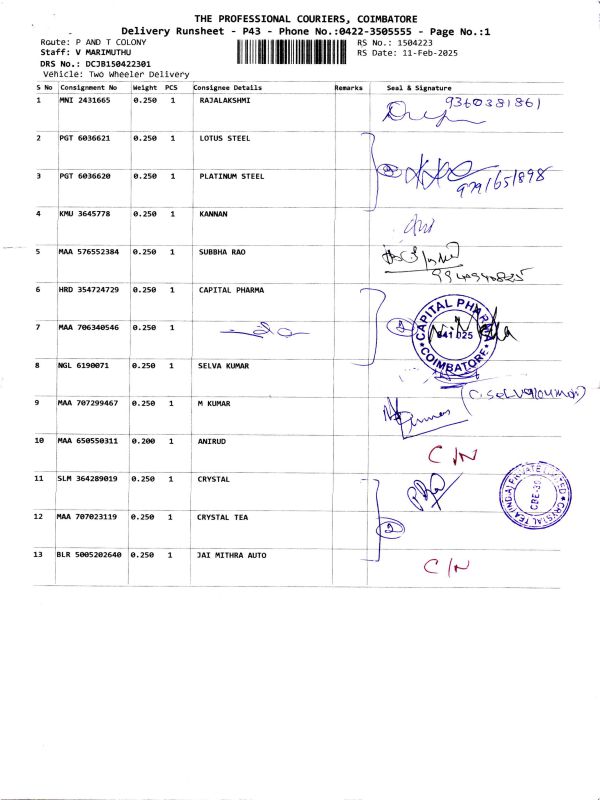 THE PROFESSIONAL COURIERS, COIMBATORE
Delivery Runsheet - P43 - Phone No.:0422-3505555 - Page No.:1
Route: P AND T COLONY RS No.: 1504223
Staff: V MARIMUTHU RS Date: 11-Feb-2025
DRS No.: DCJB150422301
Vehicle: Two Wheeler Delivery
S No Consignment No Weight PCS Consignee Details Remarks Seal & Signature
1 MNI 2431665 0.250 1 RAJALAKSHMI 9360381861
2 PGT 6036621 0.250 1 LOTUS STEEL
3 PGT 6036620 0.250 1 PLATINUM STEEL 9791651898
4 KMU 3645778 0.250 1 KANNAN
5 MAA 576552384 0.250 1 SUBBHA RAO
9940940825
6 HRD 354724729 0.250 1 CAPITAL PHARMA
7 MAA 706340546 0.250 1 2 CAPITAL PHARMA 641 025 COIMBATORE
8 NGL 6190071 0.250 1 SELVA KUMAR
9 MAA 707299467 0.250 1 M KUMAR
10 MAA 650550311 0.200 1 ANIRUD C/N
11 SLM 364289019 0.250 1 CRYSTAL
CRYSTAL TEA (INDIA) PRIVATE LIMITED
12 MAA 707023119 0.250 1 CRYSTAL TEA 2
13 BLR 5005202640 0.250 1 JAI MITHRA AUTO C/N